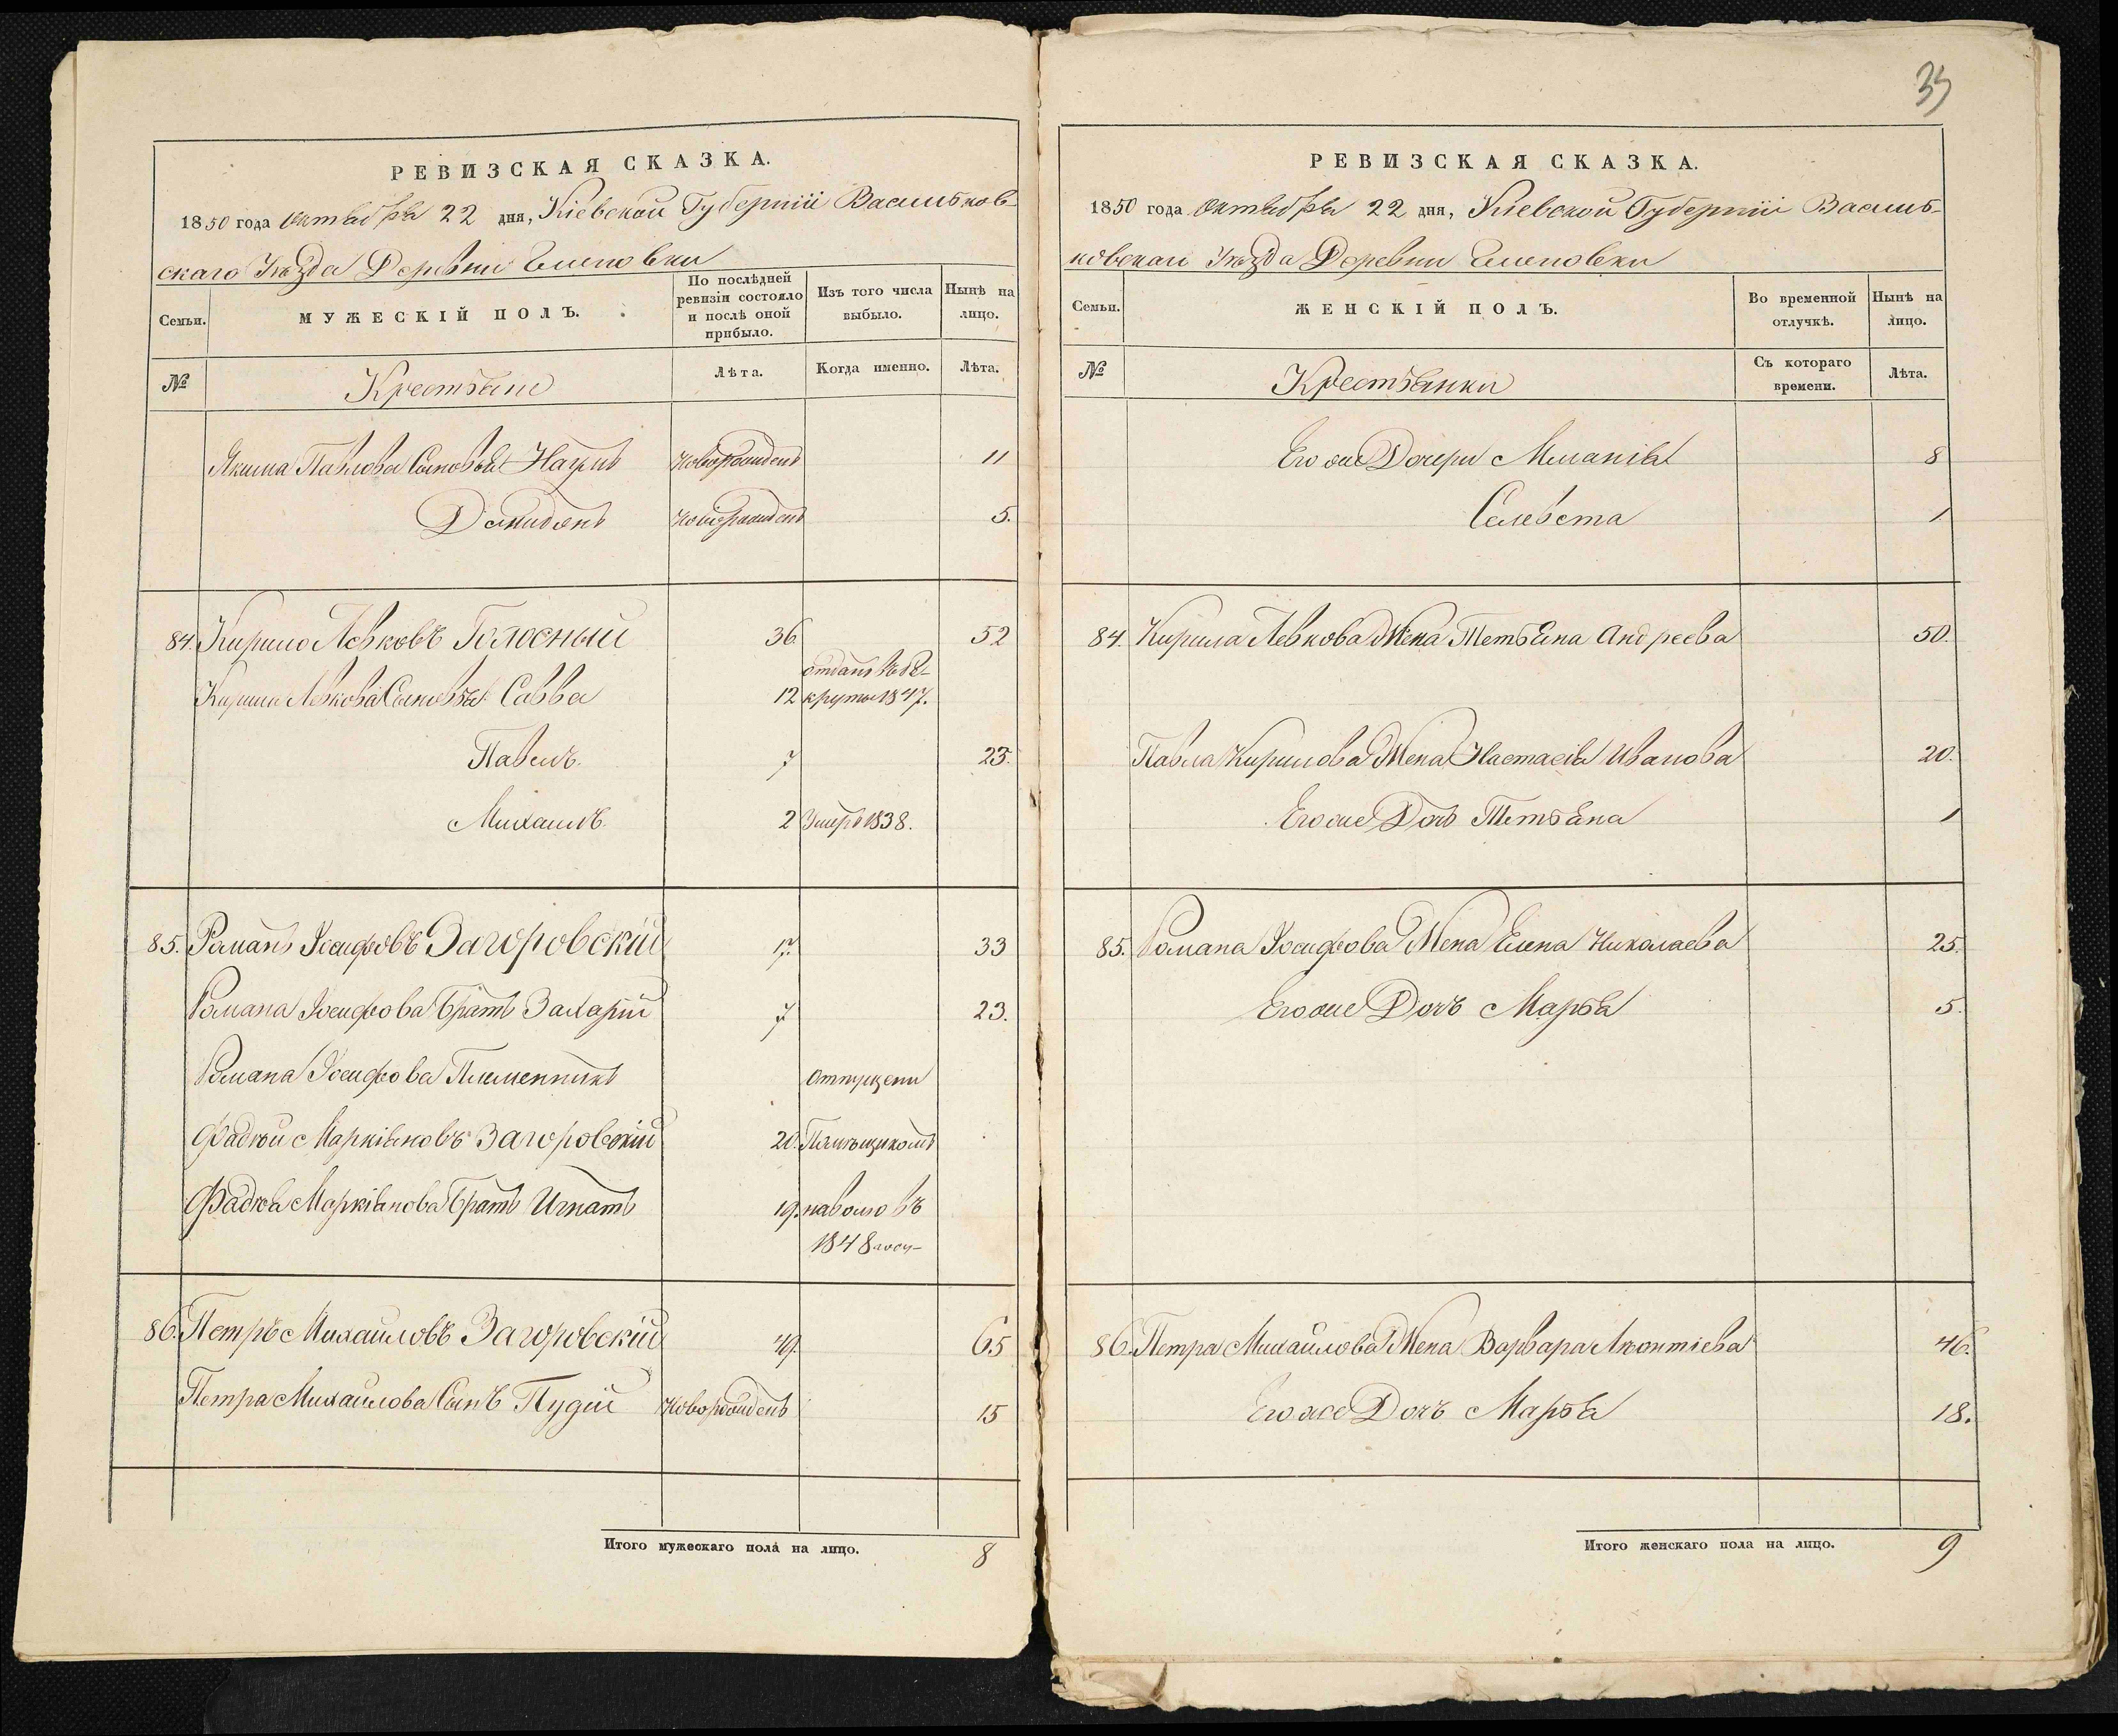 РЕВИЗСКАЯ СКАЗКА.
1850 года октября 22 дня, Кіевской Губерніи Васильков-
скаго Уѣзда Деревни Еленовки
Семьи.
МУЖЕСКІЙ ПОЛЪ.
По послѣдней ревизіи состояло и послѣ оной прибыло.
Изъ того числа выбыло.
Нынѣ на лицо.
№
Крестьяне
Лѣта.
Когда именно.
Лѣта.
Якима Павлова Сыновья Наумъ новорожденъ 11
Демидянъ новорожденъ 5.
84. Кирило Левковъ Голосный 36 52
отданъ въ Ре-
Кирила Левкова Сыновья Савва 12 круты 1847.
Павелъ. 7 23.
Михаилъ. 2 Умеръ 1838.
85. Романъ Іосифовъ Загоровскій 17. 33
Романа Іосифова братъ Захарій 7 23.
Романа Іосифова Племенникъ отпущени
Фадѣй Маркіяновъ Загоровскій 20. Помѣщикомъ
Фадѣя Маркіянова братъ Игнатъ 19. наволю въ
1848 году
86. Петръ Михайловъ Загоровскій 49. 65
Петра Михайлова Сынъ Пудій новорожденъ 15
Итого мужескаго пола на лицо. 8
39
РЕВИЗСКАЯ СКАЗКА.
1850 года октября 22 дня, Кіевской Губерніи Василь-
ковскаго Уѣзда Деревни Еленовки
Семьи.
ЖЕНСКІЙ ПОЛЪ.
Во временной отлучкѣ.
Нынѣ на лицо.
№
Крестьянки
Съ котораго времени.
Лѣта.
Его же Дочери Миланія 8
Селевста 1
84. Кирила Левкова Жена Тетьяна Андреева 50.
Павла Кирилова Жена Настасія Иванова 20.
Его же Дочь Тетьяна 1
85. Романа Іосифова Жена Елена Николаева 25.
Его же Дочь Марья 5.
86. Петра Михайлова Жена Варвара Леонтіева 46.
Его же Дочь Марья 18.
Итого женскаго пола на лицо. 9